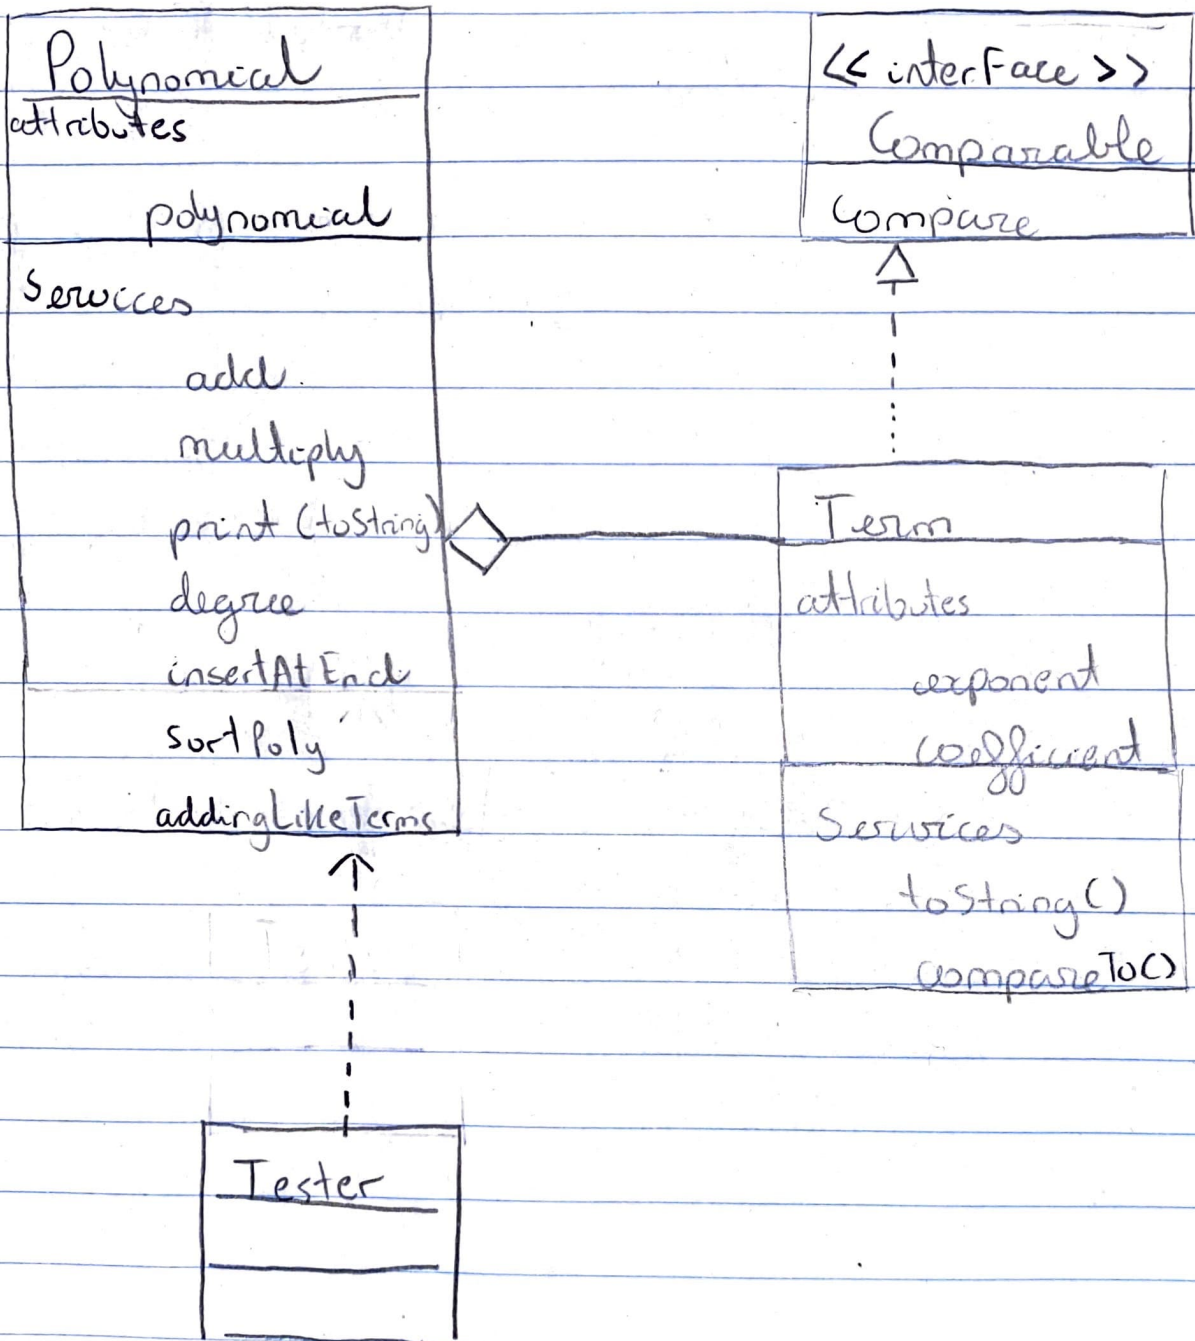 Polynomial
attributes
polynomial
Services
add
multiply
print (toString)
degree
insertAtEnd
sortPoly
addingLikeTerms
<< interFace >>
Comparable
Compare
Term
attributes
exponent
coefficient
Services
toString()
compareTo()
Tester